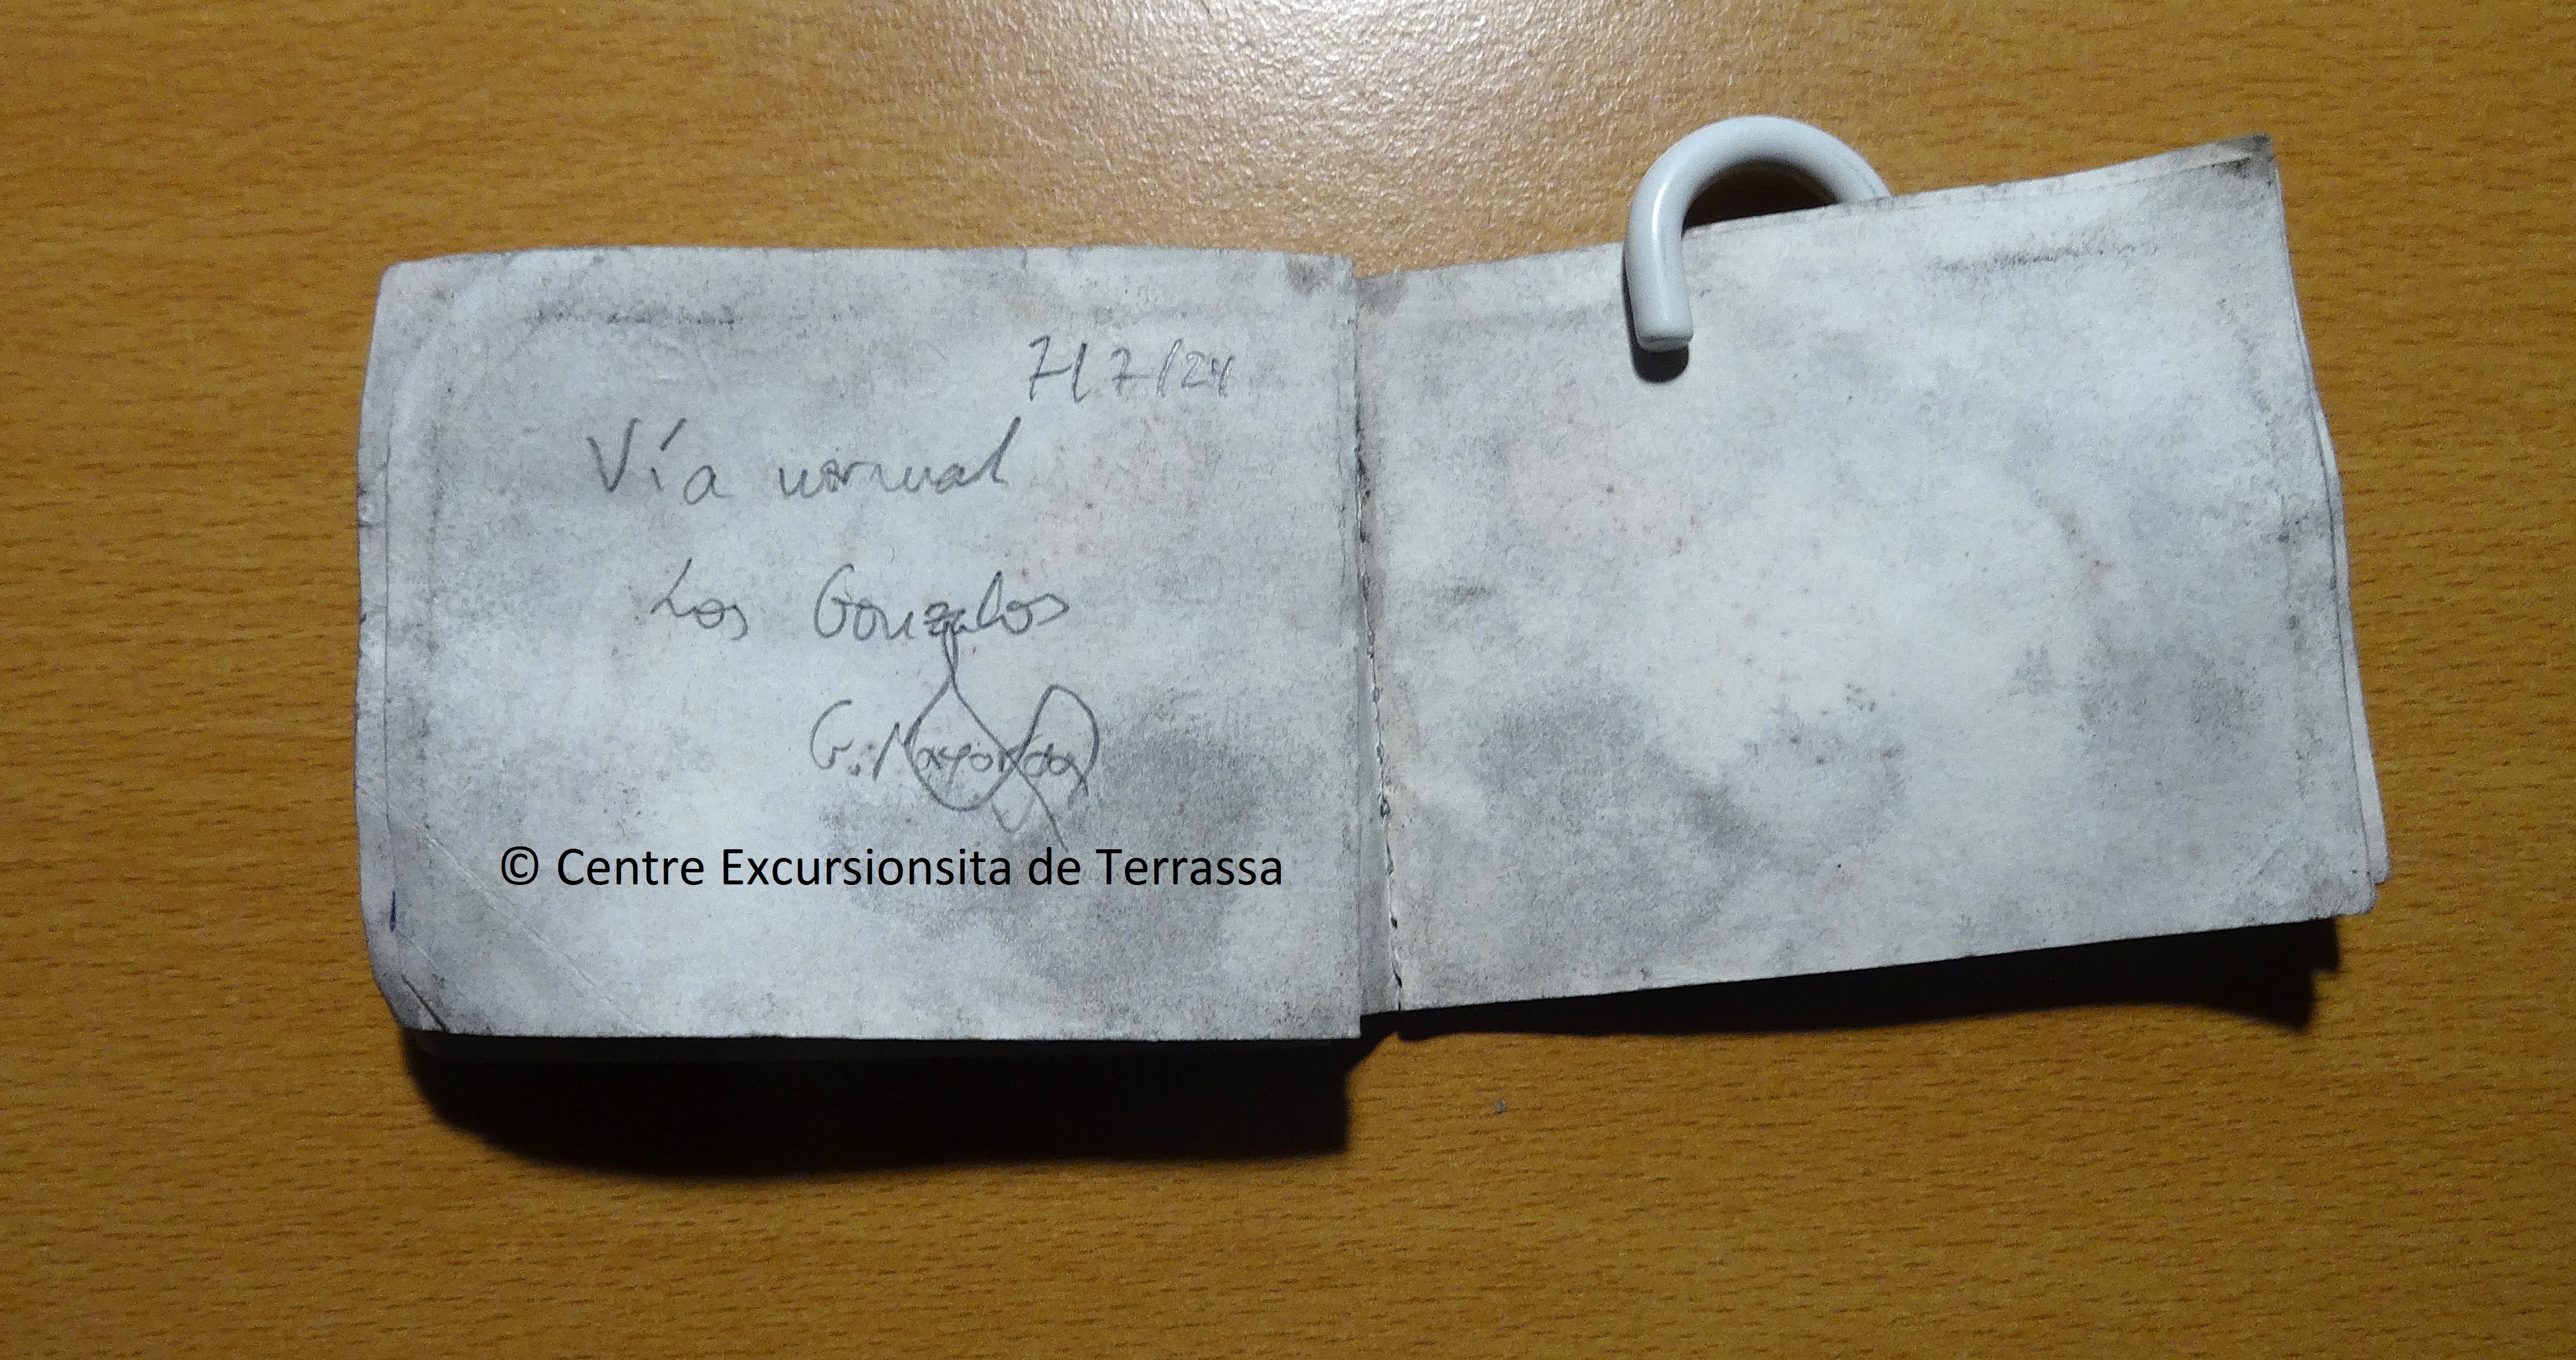 7/7/24
Vía normal
Los Gonzalos
G. Mayordo
© Centre Excursionsita de Terrassa